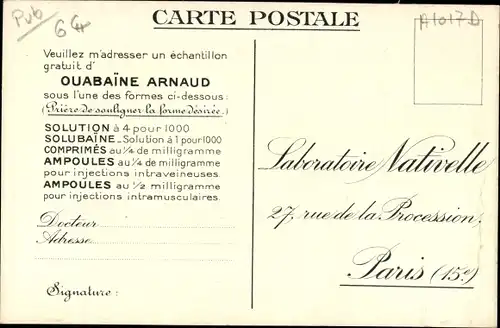 Pub
6G
CARTE POSTALE
A1017D
Veuillez m'adresser un échantillon
gratuit d'
OUABAÏNE ARNAUD
sous l'une des formes ci-dessous :
(Prière de souligner la forme désirée.)
SOLUTION à 4 pour 1000
SOLUBAÏNE_Solution à 1 pour 1000
COMPRIMÉS au 1/4 de milligramme
AMPOULES au 1/4 de milligramme
pour injections intraveineuses.
AMPOULES au 1/2 milligramme
pour injections intramusculaires.
Docteur
Adresse
Signature :
Laboratoire Nativelle
27, rue de la Procession,
Paris (15e)